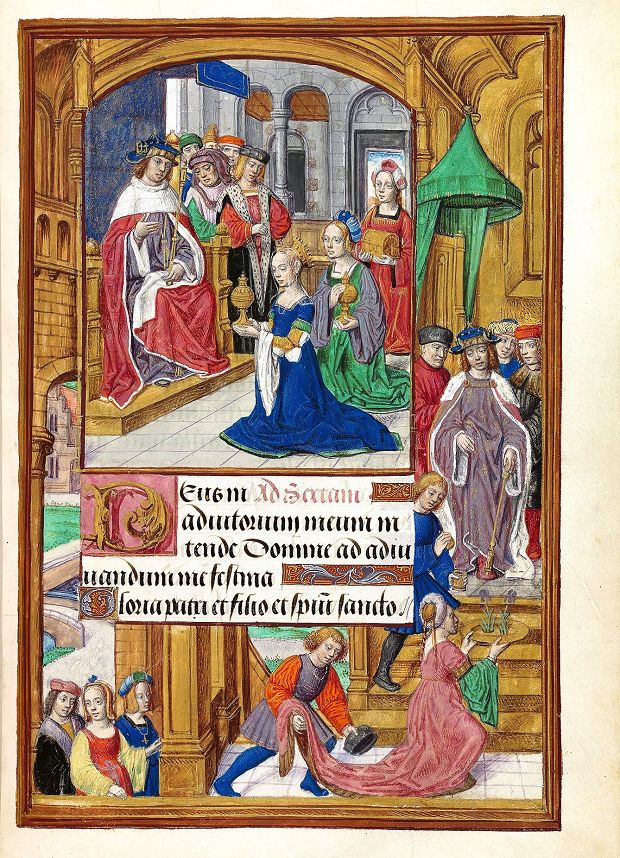 Deus in Ad Sextam
adiutorium meum in
tende Domine ad adiu
uandum me festina
Gloria patri et filio et spiũ sancto